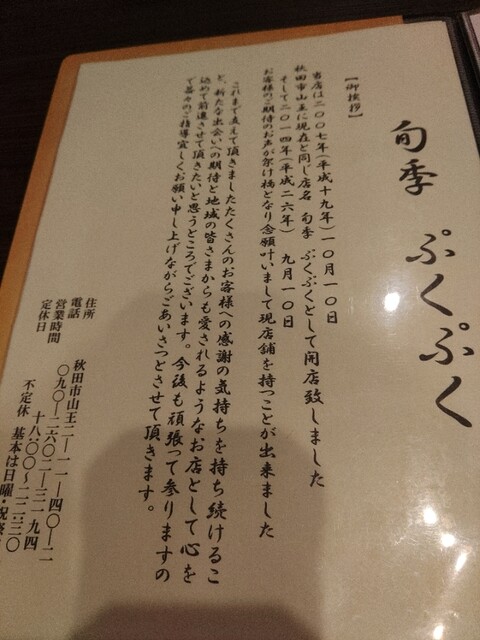 旬季 ぷくぷく
【御挨拶】
当店は二〇〇七年(平成十九年)一〇月一〇日
秋田市山王に現在と同じ店名 旬季 ぷくぷくとして開店致しました
そして二〇一四年(平成二六年) 九月一〇日
お客様のご期待のお声が架け橋となり念願叶いまして現店舗を持つことが出来ました
これまで支えて頂きましたたくさんのお客様への感謝の気持ちを持ち続けるこ
と、新たな出会いへの期待と地域の皆さまからも愛されるようなお店として心を
込めて前進させて頂きたいと思うところでございます。今後も頑張って参りますの
で益々のご指導宜しくお願い申し上げながらごあいさつとさせて頂きます。
住所 秋田市山王二―一―四〇―二
電話 〇九〇―二六〇二―三一九四
営業時間 十八:〇〇~二二:三〇
定休日 不定休 基本は日曜・祝祭